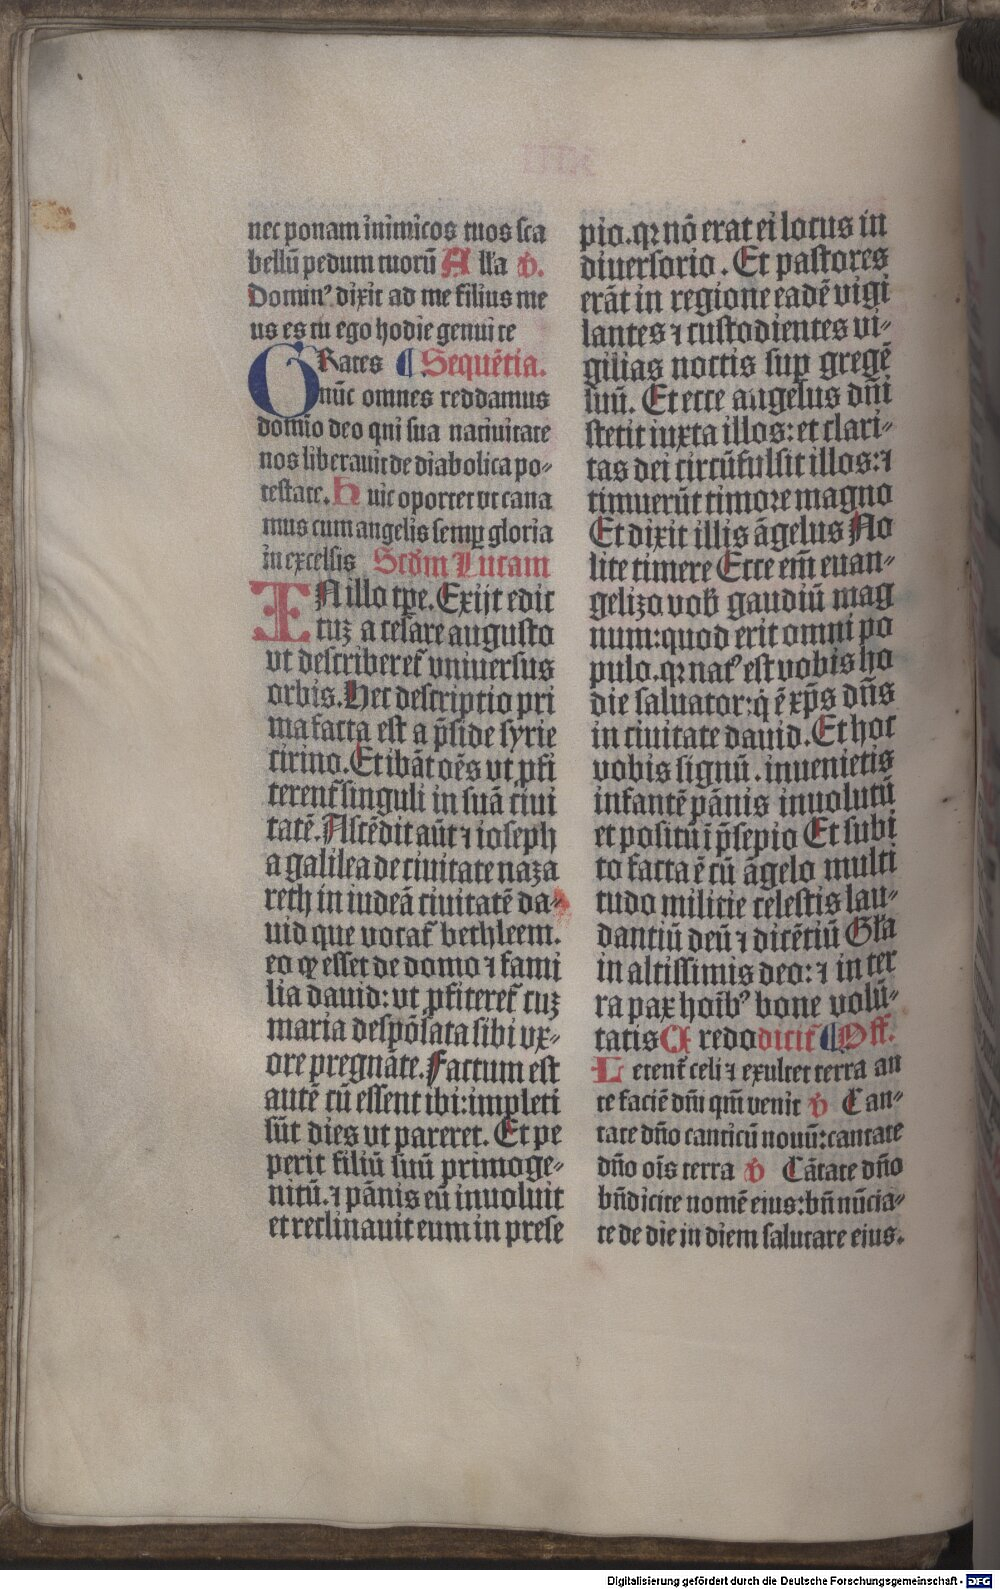 nec ponam inimicos tuos sca
bellū pedum tuoꝝ̄ Alľa ꝟ.
Dominꝰ dixit ad me filius me
us es tu ego hodie genui te
GRates ¶ Sequētia.
nūc omnes reddamus
domīo deo qui sua natiuitate
nos liberauit de diabolica po⸗
testate. Huic oportet vt cana
mus cum angelis semꝑ gloria
in excelsis Scd̄m Lucam
IN illo tꝑe. Exijt edic
tuꝫ a cesare augusto
vt describeret᷑ vniuersus
orbis. Hec descriptio pri
ma facta est a p̄side syrie
cirino. Et ibāt oēs vt ꝓfi
terent᷑ singuli in suā ciui
tatē. Ascēdit aūt ⁊ ioseph
a galilea de ciuitate naza
reth in iudeā ciuitatē da⸗
uid que vocat᷑ bethleem.
eo ꝙ esset de domo ⁊ fami
lia dauid: vt ꝓfiteret᷑ cuꝫ
maria despōsata sibi vx⸗
ore pregnāte. Factum est
autē cū essent ibi: impleti
sūt dies vt pareret. Et pe
perit filiū suū primoge⸗
nitū. ⁊ pānis eū inuoluit
et reclinauit eum in prese
pio. qꝛ nō erat ei locus in
diuersorio. Et pastores
erāt in regione eadē vigi
lantes ⁊ custodientes vi⸗
gilias noctis suꝑ gregē
suū. Et ecce angelus dn̄i
stetit iuxta illos: et clari⸗
tas dei circūfulsit illos: ⁊
timuerūt timore magno
Et dixit illis āgelus No
lite timere Ecce em̄ euan⸗
gelizo vob̄ gaudiū mag
num: quod erit omni po
pulo. qꝛ natꝰ est vobis ho
die saluator: q̇ ē xp̄s dn̄s
in ciuitate dauid. Et hoc
vobis signū. inuenietis
infantē pānis inuolutū
et positū ī p̄sepio Et subi
to facta ē cū āgelo multi
tudo militie celestis lau⸗
dantiū deū ⁊ dicētiū Gľa
in altissimis deo: ⁊ in ter
ra pax hoībꝰ bone volū⸗
tatis Credo dicit᷑ ¶ Off.
Letent᷑ celi ⁊ exultet terra an
te faciē dn̄i qm̄ venit ꝟ Can⸗
tate dn̄o canticū nouū: cantate
dn̄o oīs terra ꝟ Cātate dn̄o
bn̄dicite nomē eius: bn̄ nūcia⸗
te de die in diem salutare eius.
Digitalisierung gefördert durch die Deutsche Forschungsgemeinschaft - DFG